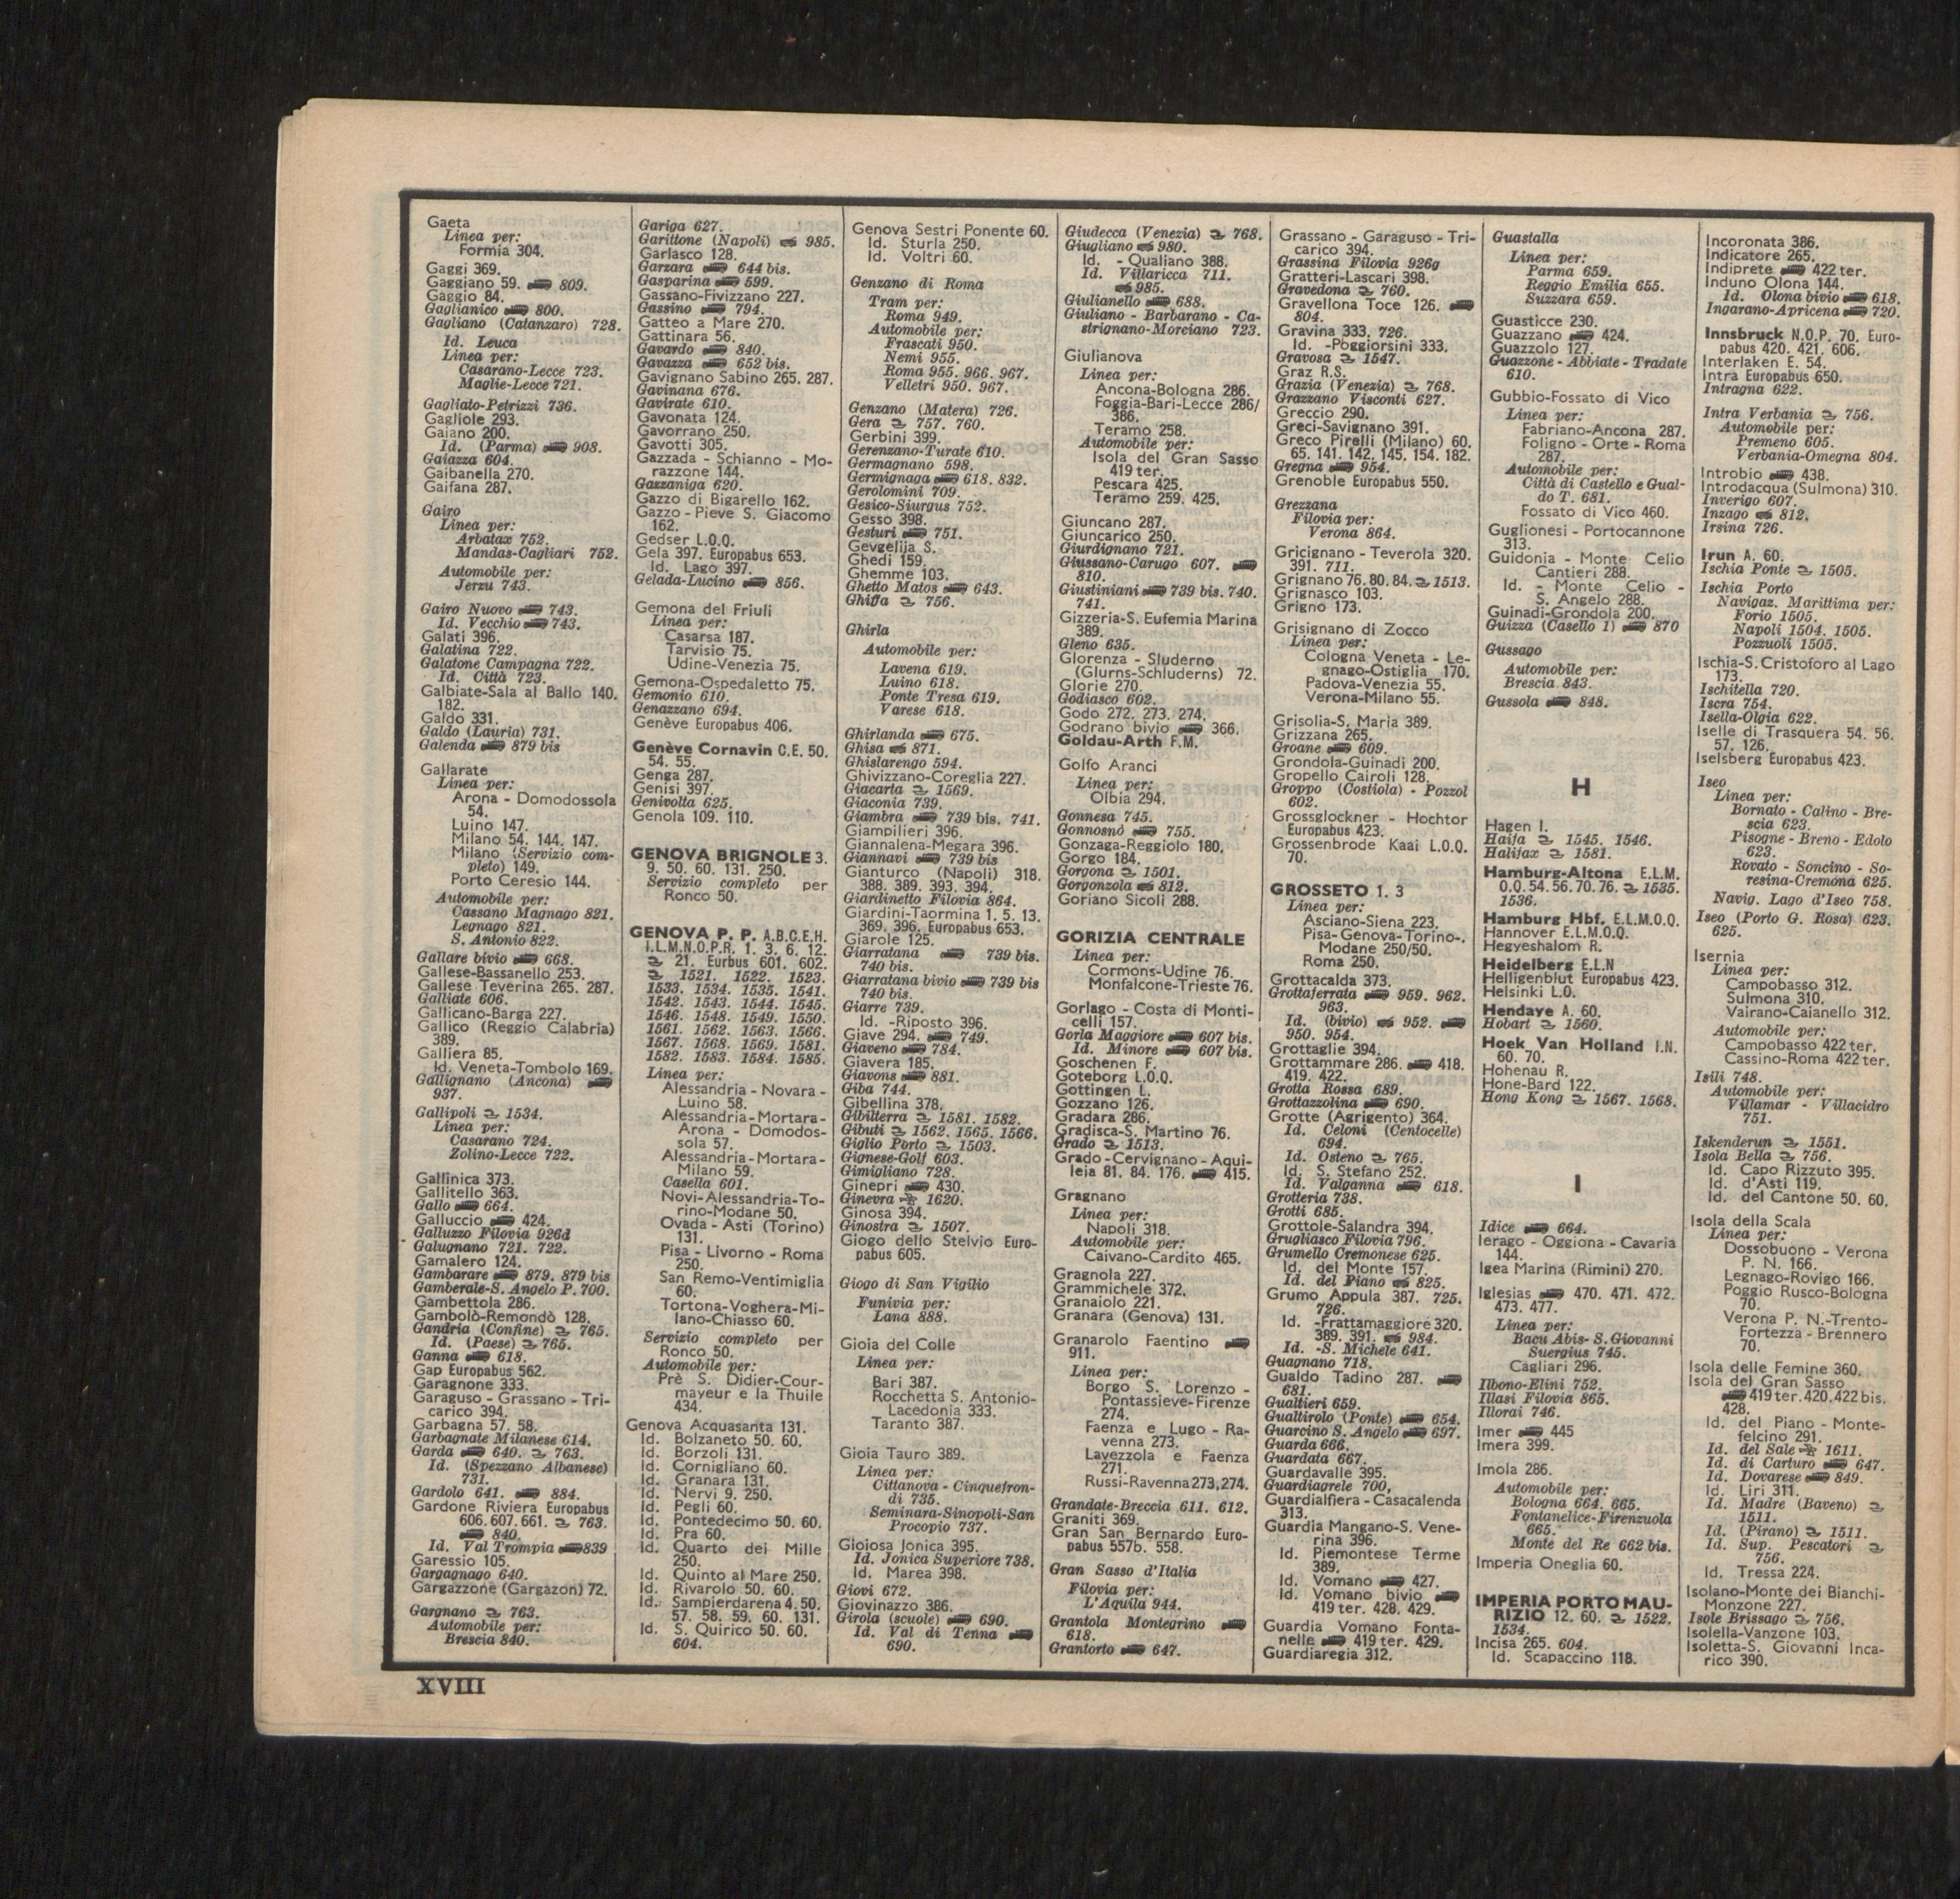 Gaeta
Linea per:
Formia 304.
Gaggi 369.
Gaggiano 59. 809.
Gaggio 84.
Gaglianico 800.
Gagliano (Catanzaro) 728.
Id. Leuca
Linea per:
Casarano-Lecce 723.
Maglie-Lecce 721.
Gagliato-Petrizzi 736.
Gagliole 293.
Gaiano 200.
Id. (Parma) 908.
Gaiazza 604.
Gaibanella 270.
Gaifana 287.
Gairo
Linea per:
Arbatax 752.
Mandas-Cagliari 752.
Automobile per:
Jerzu 743.
Gairo Nuovo 743.
Id. Vecchio 743.
Galati 396.
Galatina 722.
Galatone Campagna 722.
Id. Città 723.
Galbiate-Sala al Ballo 140.
182.
Galdo 331.
Galdo (Lauria) 731.
Galenda 879 bis
Gallarate
Linea per:
Arona - Domodossola
54.
Luino 147.
Milano 54. 144. 147.
Milano (Servizio com-
pleto) 149.
Porto Ceresio 144.
Automobile per:
Cassano Magnago 821.
Legnago 821.
S. Antonio 822.
Gallare bivio 668.
Gallese-Bassanello 253.
Gallese Teverina 265. 287.
Galliate 606.
Gallicano-Barga 227.
Gallico (Reggio Calabria)
389.
Galliera 85.
Id. Veneta-Tombolo 169.
Gallignano (Ancona)
937.
Gallipoli 1534.
Linea per:
Casarano 724.
Zolino-Lecce 722.
Gallinica 373.
Gallitello 363.
Gallo 664.
Galluccio 424.
Galluzzo Filovia 926d
Galugnano 721. 722.
Gamalero 124.
Gambarare 879. 879 bis
Gamberale-S. Angelo P. 700.
Gambettola 286.
Gambolò-Remondò 128.
Gandria (Confine) 765.
Id. (Paese) 765.
Ganna 618.
Gap Europabus 562.
Garagnone 333.
Garaguso - Grassano - Tri-
carico 394.
Garbagna 57. 58.
Garbagnate Milanese 614.
Garda 640. 763.
Id. (Spezzano Albanese)
731.
Gardolo 641. 884.
Gardone Riviera Europabus
606. 607. 661. 763.
840.
Id. Val Trompia 839
Garessio 105.
Gargagnago 640.
Gargazzone (Gargazon) 72.
Gargnano 763.
Automobile per:
Brescia 840.
Gariga 627.
Garittone (Napoli) 985.
Garlasco 128.
Garzara 644 bis.
Gasparina 599.
Gassano-Fivizzano 227.
Gassino 794.
Gatteo a Mare 270.
Gattinara 56.
Gavardo 840.
Gavazza 652 bis.
Gavignano Sabino 265. 287.
Gavinana 676.
Gavirate 610.
Gavonata 124.
Gavorrano 250.
Gavotti 305.
Gazzada - Schianno - Mo-
razzone 144.
Gazzaniga 620.
Gazzo di Bigarello 162.
Gazzo - Pieve S. Giacomo
162.
Gedser L.O.Q.
Gela 397. Europabus 653.
Id. Lago 397.
Gelada-Lucino 856.
Gemona del Friuli
Linea per:
Casarsa 187.
Tarvisio 75.
Udine-Venezia 75.
Gemona-Ospedaletto 75.
Gemonio 610.
Genazzano 694.
Genève Europabus 406.
Genève Cornavin C.E. 50.
54. 55.
Genga 287.
Genisi 397.
Genivolta 625.
Genola 109. 110.
GENOVA BRIGNOLE 3.
9. 50. 60. 131. 250.
Servizio completo per
Ronco 50.
GENOVA P. P. A.B.C.E.H.
I.L.M.N.O.P.R. 1. 3. 6. 12.
21. Eurbus 601. 602.
1521. 1522. 1523.
1533. 1534. 1535. 1541.
1542. 1543. 1544. 1545.
1546. 1548. 1549. 1550.
1561. 1562. 1563. 1566.
1567. 1568. 1569. 1581.
1582. 1583. 1584. 1585.
Linea per:
Alessandria - Novara -
Luino 58.
Alessandria-Mortara-
Arona - Domodos-
sola 57.
Alessandria-Mortara-
Milano 59.
Casella 601.
Novi-Alessandria-To-
rino-Modane 50.
Ovada - Asti (Torino)
131.
Pisa - Livorno - Roma
250.
San Remo-Ventimiglia
60.
Tortona-Voghera-Mi-
lano-Chiasso 60.
Servizio completo per
Ronco 50.
Automobile per:
Prè S. Didier-Cour-
mayeur e la Thuile
434.
Genova Acquasanta 131.
Id. Bolzaneto 50. 60.
Id. Borzoli 131.
Id. Cornigliano 60.
Id. Granara 131.
Id. Nervi 9. 250.
Id. Pegli 60.
Id. Pontedecimo 50. 60.
Id. Pra 60.
Id. Quarto dei Mille
250.
Id. Quinto al Mare 250.
Id. Rivarolo 50. 60.
Id. Sampierdarena 4. 50.
57. 58. 59. 60. 131.
Id. S. Quirico 50. 60.
604.
Genova Sestri Ponente 60.
Id. Sturla 250.
Id. Voltri 60.
Genzano di Roma
Tram per:
Roma 949.
Automobile per:
Frascati 950.
Nemi 955.
Roma 955. 966. 967.
Velletri 950. 967.
Genzano (Matera) 726.
Gera 757. 760.
Gerbini 399.
Gerenzano-Turate 610.
Germagnano 598.
Germignaga 618. 832.
Gerolomini 709.
Gesico-Siurgus 752.
Gesso 398.
Gesturi 751.
Gevgelija S.
Ghedi 159.
Ghemme 103.
Ghetto Matos 643.
Ghiffa 756.
Ghirla
Automobile per:
Lavena 619.
Luino 618.
Ponte Tresa 619.
Varese 618.
Ghirlanda 675.
Ghisa 871.
Ghislarengo 594.
Ghivizzano-Coreglia 227.
Giacarta 1569.
Giaconia 739.
Giambra 739 bis. 741.
Giampilieri 396.
Giannalena-Megara 396.
Giannavi 739 bis
Gianturco (Napoli) 318.
388. 389. 393. 394.
Giardinetto Filovia 864.
Giardini-Taormina 1. 5. 13.
369. 396. Europabus 653.
Giarole 125.
Giarratana 739 bis.
740 bis.
Giarratana bivio 739 bis
740 bis.
Giarre 739.
Id. -Riposto 396.
Giave 294. 749.
Giaveno 784.
Giavera 185.
Giavons 881.
Giba 744.
Gibellina 378.
Gibilterra 1581. 1582.
Gibuti 1562. 1565. 1566.
Giglio Porto 1503.
Gignese-Golf 603.
Gimigliano 728.
Ginepri 430.
Ginevra 1620.
Ginosa 394.
Ginostra 1507.
Giogo dello Stelvio Euro-
pabus 605.
Giogo di San Vigilio
Funivia per:
Lana 888.
Gioia del Colle
Linea per:
Bari 387.
Rocchetta S. Antonio-
Lacedonia 333.
Taranto 387.
Gioia Tauro 389.
Linea per:
Cittanova - Cinquefron-
di 735.
Seminara-Sinopoli-San
Procopio 737.
Gioiosa Jonica 395.
Id. Jonica Superiore 738.
Id. Marea 398.
Giovi 672.
Giovinazzo 386.
Girola (scuole) 690.
Id. Val di Tenna
690.
Giudecca (Venezia) 768.
Giugliano 980.
Id. - Qualiano 388.
Id. Villaricca 711.
985.
Giulianello 688.
Giuliano - Barbarano - Ca-
strignano-Morciano 723.
Giulianova
Linea per:
Ancona-Bologna 286.
Foggia-Bari-Lecce 286/
386.
Teramo 258.
Automobile per:
Isola del Gran Sasso
419 ter.
Pescara 425.
Teramo 259. 425.
Giuncano 287.
Giuncarico 250.
Giurdignano 721.
Giussano-Carugo 607.
810.
Giustiniani 739 bis. 740.
741.
Gizzeria-S. Eufemia Marina
389.
Gleno 635.
Glorenza - Sluderno
(Glurns-Schluderns) 72.
Glorie 270.
Godiasco 602.
Godo 272. 273. 274.
Godrano bivio 366.
Goldau-Arth F.M.
Golfo Aranci
Linea per:
Olbia 294.
Gonnesa 745.
Gonnosnò 755.
Gonzaga-Reggiolo 180.
Gorgo 184.
Gorgona 1501.
Gorgonzola 812.
Goriano Sicoli 288.
GORIZIA CENTRALE
Linea per:
Cormons-Udine 76.
Monfalcone-Trieste 76.
Gorlago - Costa di Monti-
celli 157.
Gorla Maggiore 607 bis.
Id. Minore 607 bis.
Goschenen F.
Goteborg L.O.Q.
Gottingen L.
Gozzano 126.
Gradara 286.
Gradisca-S. Martino 76.
Grado 1513.
Grado-Cervignano - Aqui-
leia 81. 84. 176. 415.
Gragnano
Linea per:
Napoli 318.
Automobile per:
Caivano-Cardito 465.
Gragnola 227.
Grammichele 372.
Granaiolo 221.
Granara (Genova) 131.
Granarolo Faentino
911.
Linea per:
Borgo S. Lorenzo -
Pontassieve-Firenze
274.
Faenza e Lugo - Ra-
venna 273.
Lavezzola e Faenza
271.
Russi-Ravenna 273,274.
Grandate-Breccia 611. 612.
Graniti 369.
Gran San Bernardo Euro-
pabus 557b. 558.
Gran Sasso d'Italia
Filovia per:
L'Aquila 944.
Grantola Montegrino
618.
Grantorto 647.
Grassano - Garaguso - Tri-
carico 394.
Grassina Filovia 926g
Gratteri-Lascari 398.
Gravedona 760.
Gravellona Toce 126.
804.
Gravina 333. 726.
Id. -Poggiorsini 333.
Gravosa 1547.
Graz R.S.
Grazia (Venezia) 768.
Grazzano Visconti 627.
Greccio 290.
Greci-Savignano 391.
Greco Pirelli (Milano) 60.
65. 141. 142. 145. 154. 182.
Gregna 954.
Grenoble Europabus 550.
Grezzana
Filovia per:
Verona 864.
Gricignano - Teverola 320.
391. 711.
Grignano 76. 80. 84. 1513.
Grignasco 103.
Grigno 173.
Grisignano di Zocco
Linea per:
Cologna Veneta - Le-
gnago-Ostiglia 170.
Padova-Venezia 55.
Verona-Milano 55.
Grisolia-S. Maria 389.
Grizzana 265.
Groane 609.
Grondola-Guinadi 200.
Gropello Cairoli 128.
Groppo (Costiola) - Pozzol
602.
Grossglockner - Hochtor
Europabus 423.
Grossenbrode Kaai L.O.Q.
70.
GROSSETO 1. 3
Linea per:
Asciano-Siena 223.
Pisa-Genova-Torino-.
Modane 250/50.
Roma 250.
Grottacalda 373.
Grottaferrata 959. 962.
963.
Id. (bivio) 952.
950. 954.
Grottaglie 394.
Grottammare 286. 418.
419. 422.
Grotta Rossa 689.
Grottazzolina 690.
Grotte (Agrigento) 364.
Id. Celoni (Centocelle)
694.
Id. Osteno 765.
Id. S. Stefano 252.
Id. Valganna 618.
Grotteria 738.
Grotti 685.
Grottole-Salandra 394.
Grugliasco Filovia 796.
Grumello Cremonese 625.
Id. del Monte 157.
Id. del Piano 825.
Grumo Appula 387. 725.
726.
Id. -Frattamaggiore 320.
389. 391. 984.
Id. -S. Michele 641.
Guagnano 718.
Gualdo Tadino 287.
681.
Gualtieri 659.
Gualtirolo (Ponte) 654.
Guarcino S. Angelo 697.
Guarda 666.
Guardata 667.
Guardavalle 395.
Guardiagrele 700,
Guardialfiera - Casacalenda
313.
Guardia Mangano-S. Vene-
rina 396.
Id. Piemontese Terme
389.
Id. Vomano 427.
Id. Vomano bivio
419 ter. 428. 429.
Guardia Vomano Fonta-
nelle 419 ter. 429.
Guardiaregia 312.
Guastalla
Linea per:
Parma 659.
Reggio Emilia 655.
Suzzara 659.
Guasticce 230.
Guazzano 424.
Guazzolo 127.
Guazzone - Abbiate - Tradate
610.
Gubbio-Fossato di Vico
Linea per:
Fabriano-Ancona 287.
Foligno - Orte - Roma
287.
Automobile per:
Città di Castello e Gual-
do T. 681.
Fossato di Vico 460.
Guglionesi - Portocannone
313.
Guidonia - Monte Celio
Cantieri 288.
Id. - Monte Celio -
S. Angelo 288.
Guinadi-Grondola 200.
Guizza (Casello 1) 870
Gussago
Automobile per:
Brescia 843.
Gussola 848.
H
Hagen I.
Haifa 1545. 1546.
Halifax 1581.
Hamburg-Altona E.L.M.
O.Q. 54. 56. 70. 76. 1535.
1536.
Hamburg Hbf. E.L.M.O.Q.
Hannover E.L.M.O.Q.
Hegyeshalom R.
Heidelberg E.L.N
Helligenblut Europabus 423.
Helsinki L.O.
Hendaye A. 60.
Hobart 1560.
Hoek Van Holland I.N.
60. 70.
Hohenau R.
Hone-Bard 122.
Hong Kong 1567. 1568.
I
Idice 664.
Ierago - Oggiona - Cavaria
144.
Igea Marina (Rimini) 270.
Iglesias 470. 471. 472.
473. 477.
Linea per:
Bacu Abis- S. Giovanni
Suergius 745.
Cagliari 296.
Ilbono-Elini 752.
Illasi Filovia 865.
Illorai 746.
Imer 445
Imera 399.
Imola 286.
Automobile per:
Bologna 664. 665.
Fontanelice-Firenzuola
665.
Monte del Re 662 bis.
Imperia Oneglia 60.
IMPERIA PORTO MAU-
RIZIO 12. 60. 1522.
1534.
Incisa 265. 604.
Id. Scapaccino 118.
Incoronata 386.
Indicatore 265.
Indiprete 422 ter.
Induno Olona 144.
Id. Olona bivio 618.
Ingarano-Apricena 720.
Innsbruck N.O.P. 70. Euro-
pabus 420. 421. 606.
Interlaken E. 54.
Intra Europabus 650.
Intragna 622.
Intra Verbania 756.
Automobile per:
Premeno 605.
Verbania-Omegna 804.
Introbio 438.
Introdacqua (Sulmona) 310.
Inverigo 607.
Inzago 812.
Irsina 726.
Irun A. 60.
Ischia Ponte 1505.
Ischia Porto
Navigaz. Marittima per:
Forio 1505.
Napoli 1504. 1505.
Pozzuoli 1505.
Ischia-S. Cristoforo al Lago
173.
Ischitella 720.
Iscra 754.
Isella-Olgia 622.
Iselle di Trasquera 54. 56.
57. 126.
Iselsberg Europabus 423.
Iseo
Linea per:
Bornato - Calino - Bre-
scia 623.
Pisogne - Breno - Edolo
623.
Rovato - Soncino - So-
resina-Cremona 625.
Navig. Lago d'Iseo 758.
Iseo (Porto G. Rosa) 623.
625.
Isernia
Linea per:
Campobasso 312.
Sulmona 310.
Vairano-Caianello 312.
Automobile per:
Campobasso 422 ter.
Cassino-Roma 422 ter.
Isili 748.
Automobile per:
Villamar - Villacidro
751.
Iskenderun 1551.
Isola Bella 756.
Id. Capo Rizzuto 395.
Id. d'Asti 119.
Id. del Cantone 50. 60.
Isola della Scala
Linea per:
Dossobuono - Verona
P. N. 166.
Legnago-Rovigo 166.
Poggio Rusco-Bologna
70.
Verona P. N.-Trento-
Fortezza - Brennero
70.
Isola delle Femine 360.
Isola del Gran Sasso
419 ter. 420. 422 bis.
428.
Id. del Piano - Monte-
felcino 291.
Id. del Sale 1611.
Id. di Carturo 647.
Id. Dovarese 849.
Id. Liri 311.
Id. Madre (Baveno)
1511.
Id. (Pirano) 1511.
Id. Sup. Pescatori
756.
Id. Tressa 224.
Isolano-Monte dei Bianchi-
Monzone 227.
Isole Brissago 756.
Isolella-Vanzone 103.
Isoletta-S. Giovanni Inca-
rico 390.
XVIII